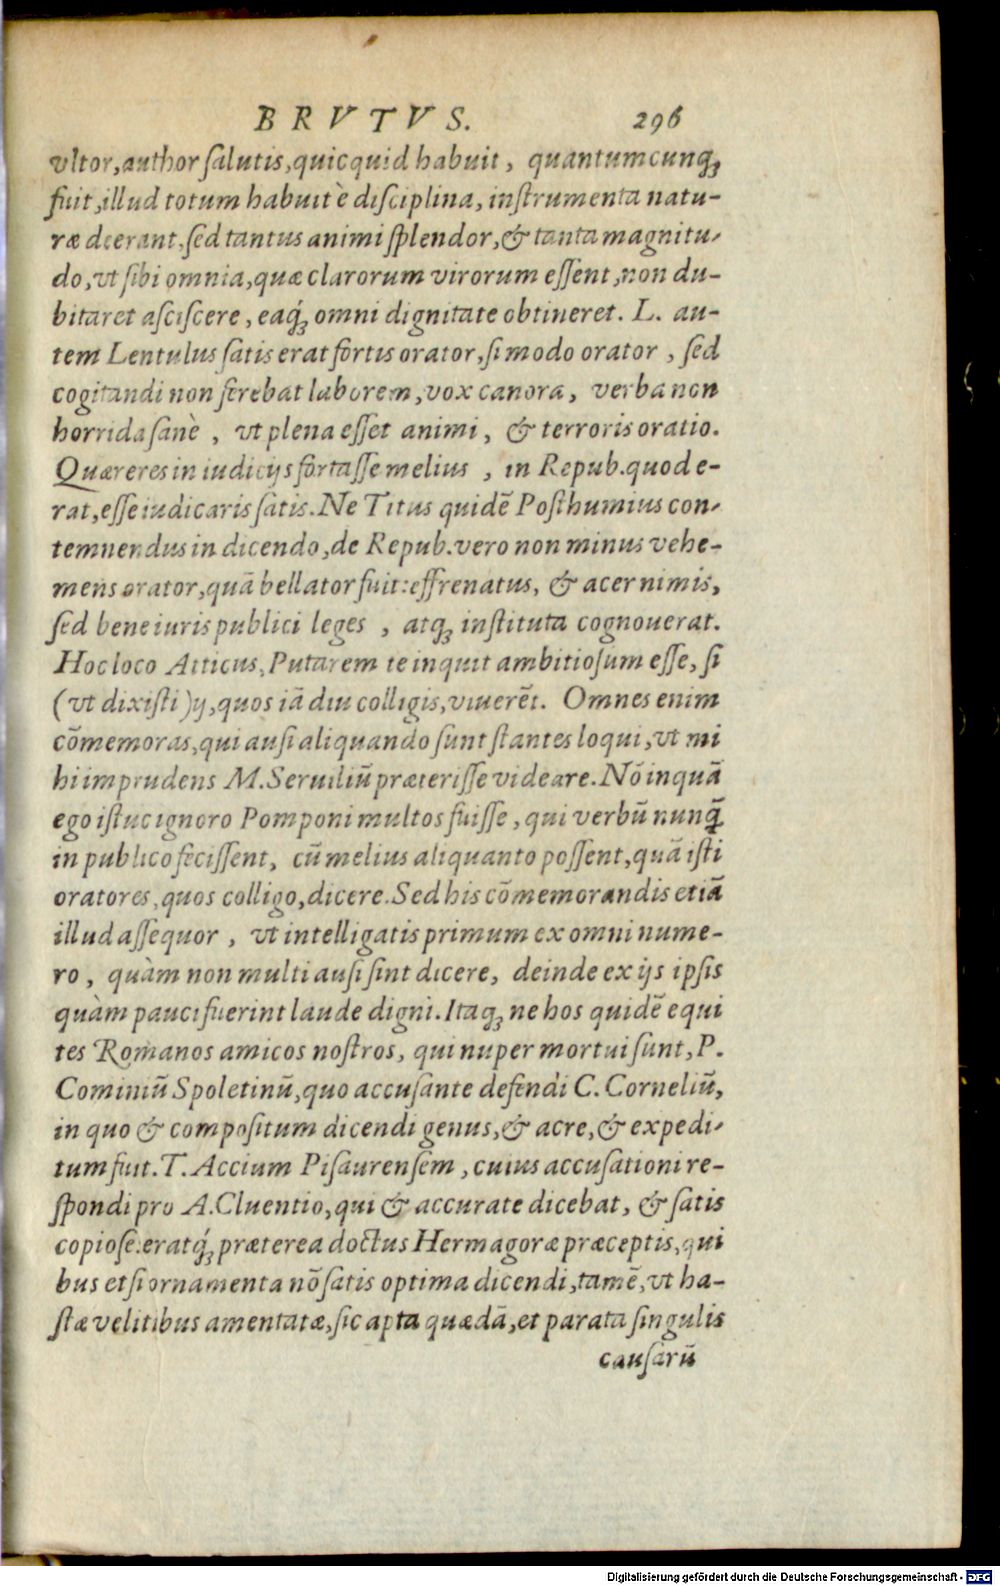 BRVTVS. 296
vltor, author salutis, quicquid habuit, quantumcunq́;
fuit, illud totum habuit è disciplina, instrumenta natu-
ræ deerant, sed tantus animi splendor, & tanta magnitu-
do, vt sibi omnia, quæ clarorum virorum essent, non du-
bitaret asciscere, eaq́; omni dignitate obtineret. L. au-
tem Lentulus satis erat fortis orator, si modo orator, sed
cogitandi non ferebat laborem, vox canora, verba non
horrida sanè, vt plena esset animi, & terroris oratio.
Quæreres in iudicijs fortasse melius, in Repub. quod e-
rat, esse iudicaris satis. Ne Titus quidē Posthumius con-
temnendus in dicendo, de Repub. vero non minus vehe-
mens orator, quā bellator fuit: effrenatus, & acer nimis,
sed bene iuris publici leges, atq; instituta cognouerat.
Hoc loco Atticus, Putarem te inquit ambitiosum esse, si
(vt dixisti) ij, quos iā diu colligis, viuerēt. Omnes enim
cōmemoras, qui ausi aliquando sunt stantes loqui, vt mi
hi imprudens M. Seruiliū præterisse videare. Nō inquā
ego istuc ignoro Pomponi multos fuisse, qui verbū nunq̄
in publico fecissent, cū melius aliquanto possent, quā isti
oratores, quos colligo, dicere. Sed his cōmemorandis etiā
illud assequor, vt intelligatis primum ex omni nume-
ro, quàm non multi ausi sint dicere, deinde ex ijs ipsis
quàm pauci fuerint laude digni. Itaq; ne hos quidē equi
tes Romanos amicos nostros, qui nuper mortui sunt, P.
Cominiū Spoletinū, quo accusante defendi C. Corneliū,
in quo & compositum dicendi genus, & acre, & expedi-
tum fuit. T. Accium Pisaurensem, cuius accusationi re-
spondi pro A. Cluentio, qui & accurate dicebat, & satis
copiose: eratq́; præterea doctus Hermagoræ præceptis, qui
bus etsi ornamenta nō satis optima dicendi, tamē, vt ha-
stæ velitibus amentatæ, sic apta quædā, et parata singulis
causarū
Digitalisierung gefördert durch die Deutsche Forschungsgemeinschaft - DFG